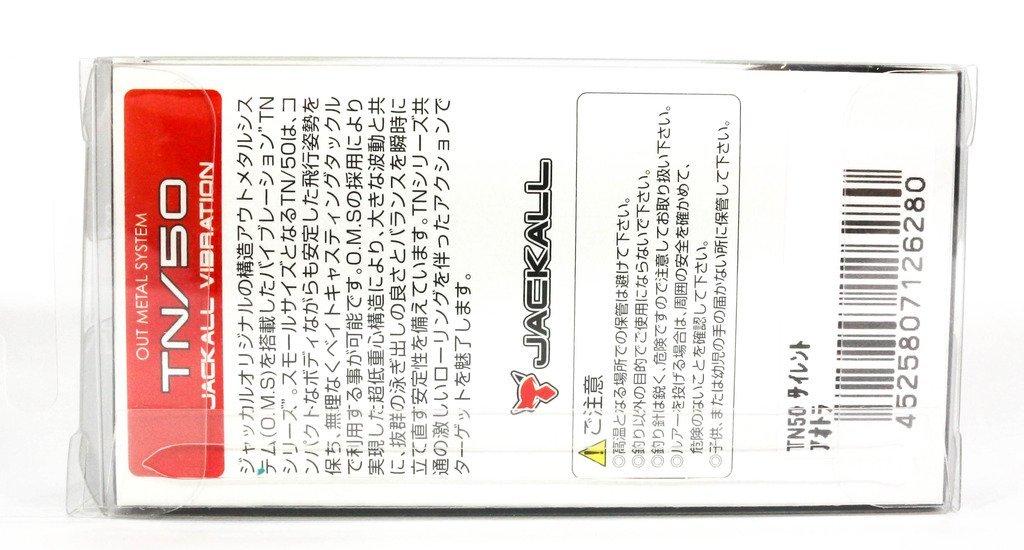 OUT METAL SYSTEM
TN/50
JACKALL VIBRATION
ジャッカルオリジナルの構造アウトメタルシス
テム(O.M.S)を搭載したバイブレーション"TN
シリーズ"。スモールサイズとなるTN/50は、コ
ンパクトなボディながらも安定した飛行姿勢を
保ち、無理なくベイトキャスティングタックル
で利用する事が可能です。O.M.Sの採用により
実現した超低重心構造により、大きな波動と共
に、抜群の泳ぎ出しの良さとバランスを瞬時に
立て直す安定性を備えています。TNシリーズ共
通の激しいローリングを伴ったアクションで
ターゲットを魅了します。
JACKALL
ご注意
◎高温となる場所での保管は避けて下さい。
◎釣り以外の目的でご使用にならないで下さい。
◎釣り針は鋭く、危険ですので注意してお取り扱い下さい。
◎ルアーを投げる場合は、周囲の安全を確かめて、
危険のないことを確認して下さい。
◎子供、または幼児の手の届かない所に保管して下さい。
TN50 サイレント
アオトラ
4525807126280